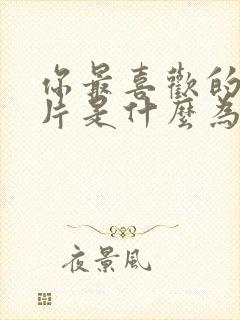 你最喜歡的
片是什麼為
夜景風